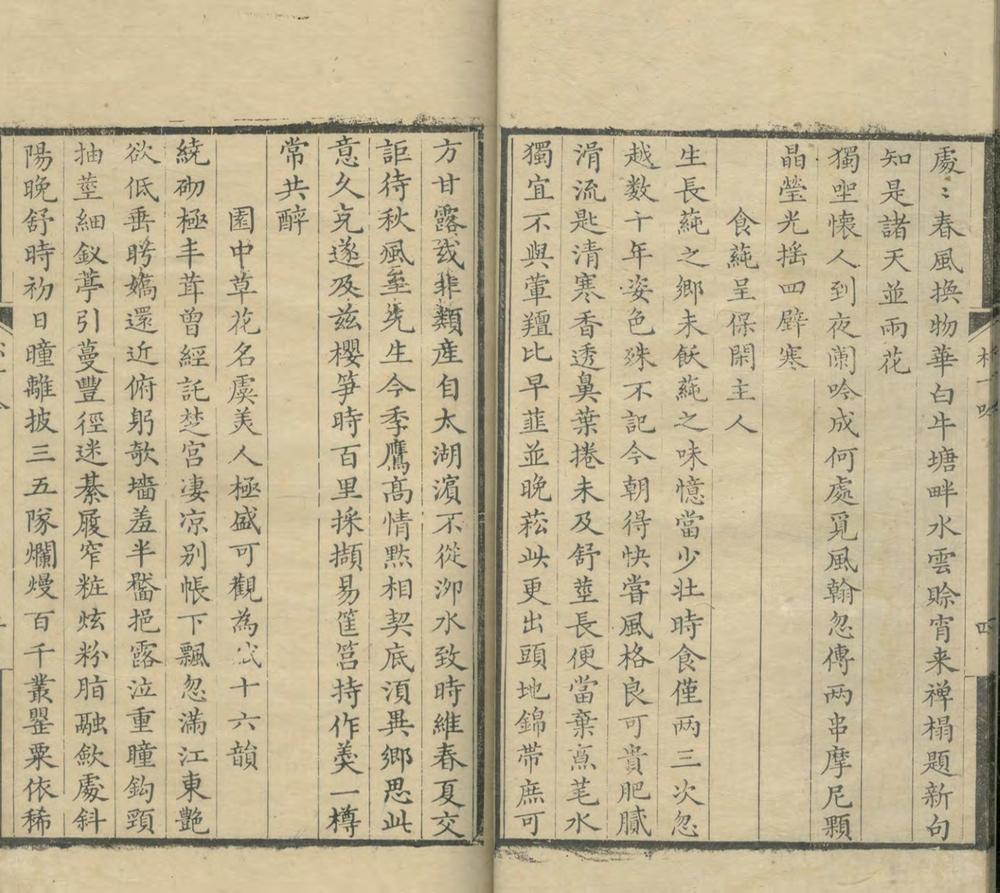 處〻春風換物華白牛塘畔水雲賒宵来禅榻題新句
知是諸天並雨花
獨坐懷人到夜闌吟成何處覓風翰忽傳两串摩尼顆
晶瑩光揺四壁寒
食蒓呈保閑主人
生長蒓之鄉未飫蒓之味憶當少壮時食僅两三次忽
越数十年姿色殊不記今朝得快嘗風格良可貴肥膩
滑流匙清寒香透鼻葉捲未及舒莖長便當棄烹芼水
獨宜不與葷羶比早韮並晚菘此更出頭地錦带庶可
方甘露或非類産自太湖濱不從泖水致時維春夏交
詎待秋風至先生今季鷹髙情黙相契底湏異鄉思此
意久克遂及兹櫻笋時百里採擷易筐筥持作羮一樽
常共醉
園中草花名虞美人極盛可觀為成十六韻
繞砌極丰茸曾經託楚宫凄凉别帳下飄忽滿江東艶
欲低垂眄嬌還近俯躬欹墙羞半醫挹露泣重瞳鈎頸
抽莖細釵葶引蔓豐徑迷綦履窄粧炫粉脂融歛處斜
陽晚舒時初日曈離披三五隊爛熳百千叢罌粟依稀
四